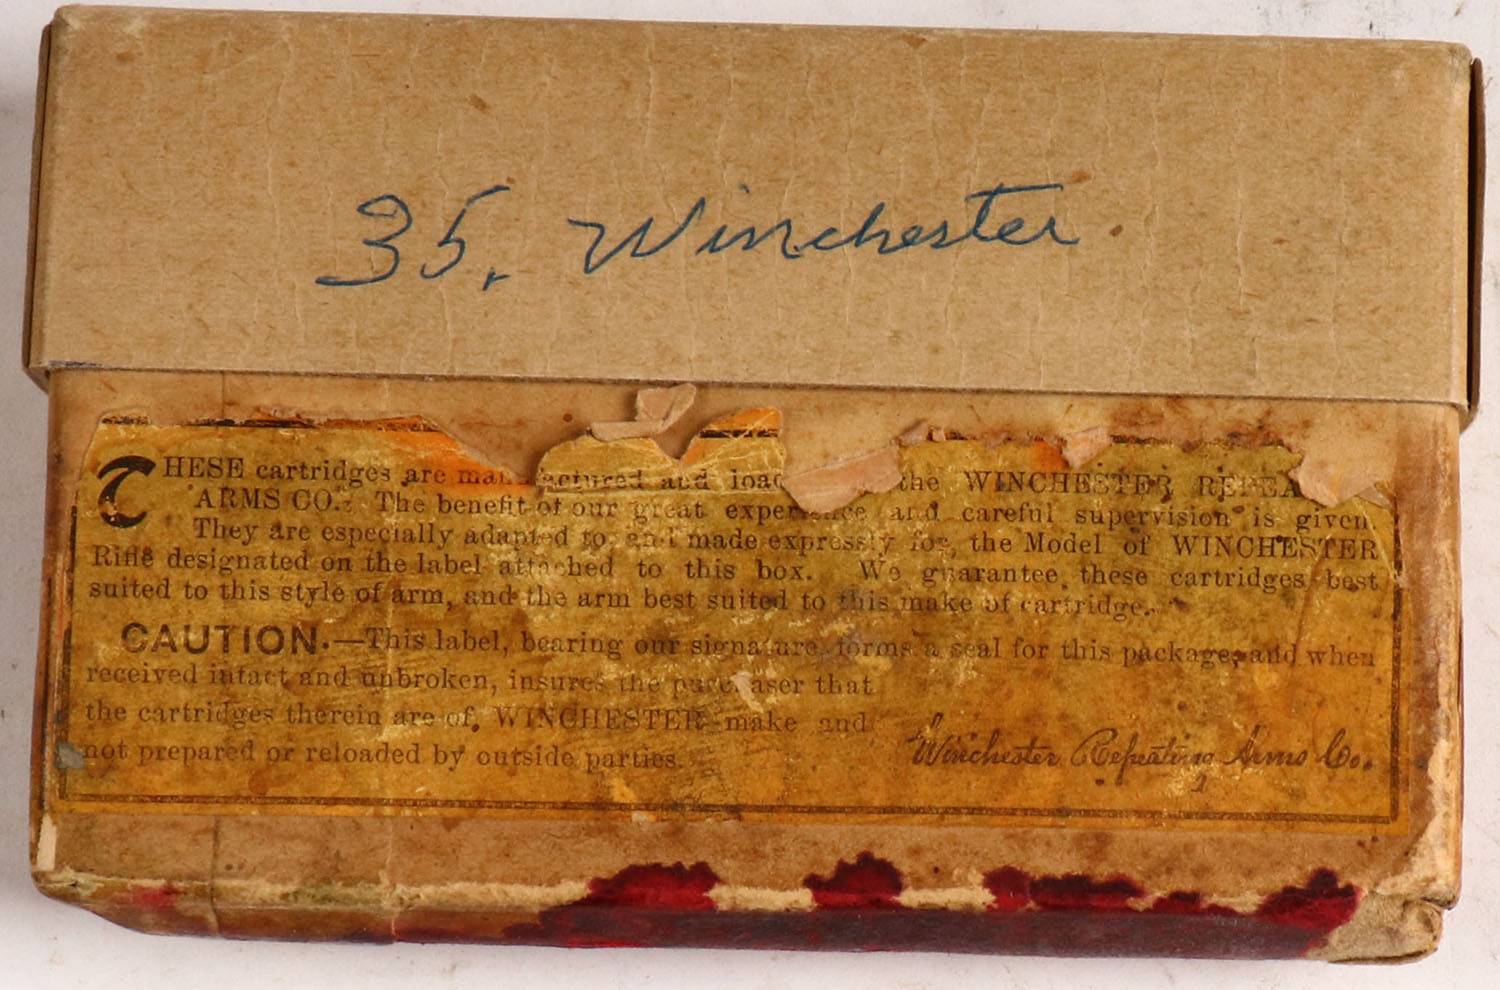 35, Winchester.
THESE cartridges are manufactured and loaded the WINCHESTER REPEA
ARMS CO. The benefit of our great experience and careful supervision is given.
They are especially adapted to and made expressly for, the Model of WINCHESTER
Rifle designated on the label attached to this box. We guarantee these cartridges best
suited to this style of arm, and the arm best suited to this make of cartridge.
CAUTION.—This label, bearing our signature, forms a seal for this package, and when
received intact and unbroken, insures the purchaser that
the cartridges therein are of WINCHESTER make and
not prepared or reloaded by outside parties.
Winchester Repeating Arms Co.